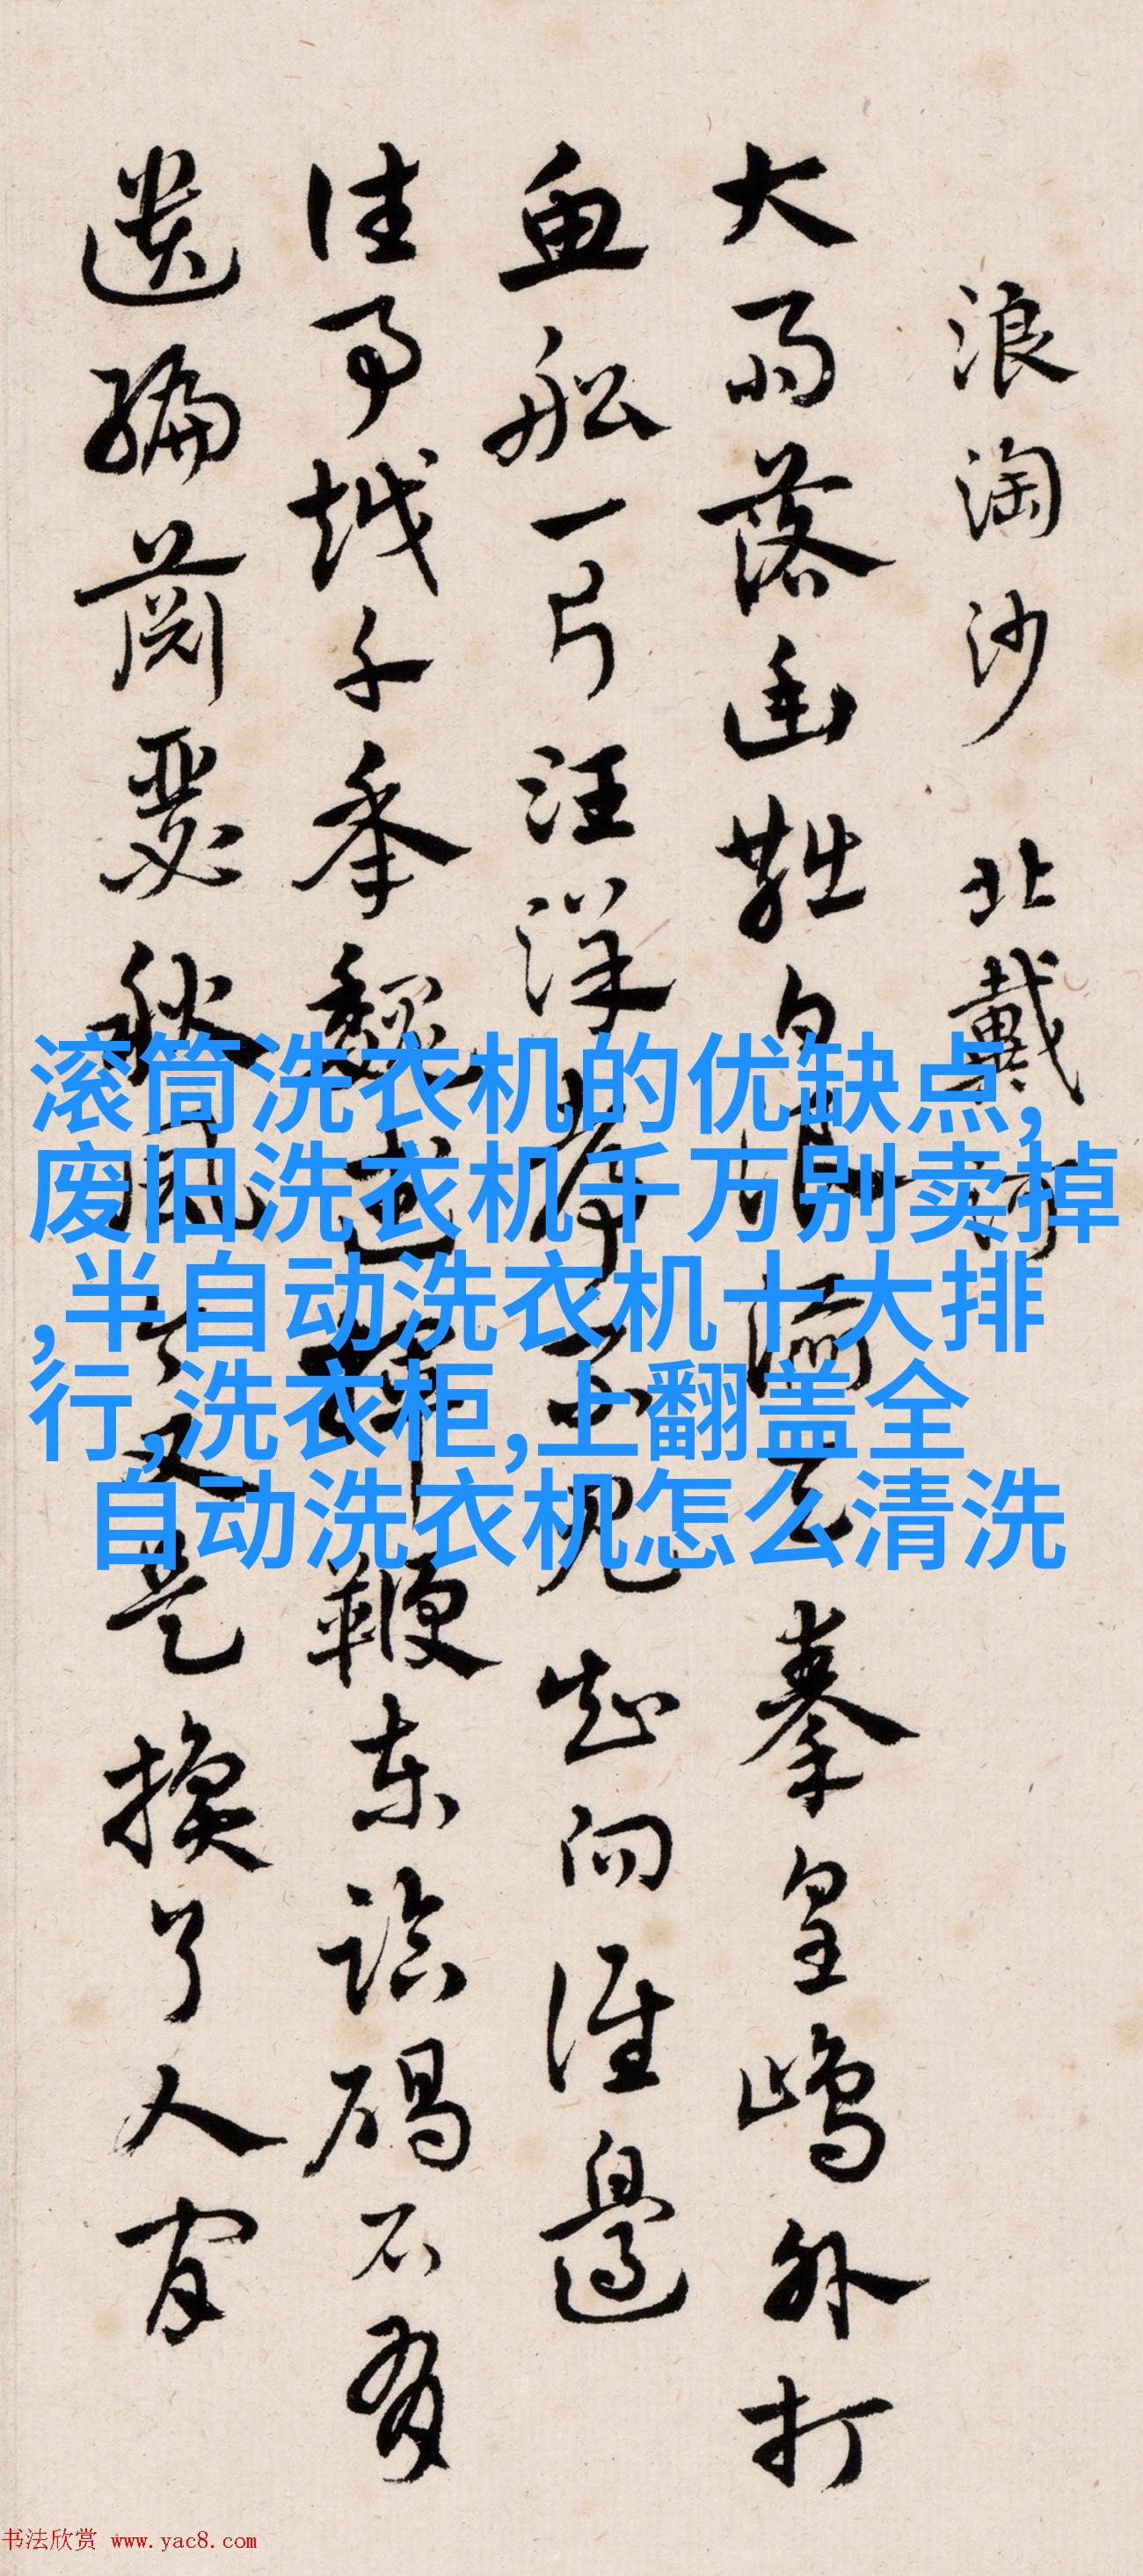 浪淘沙 北戴河
大雨落幽燕白浪滔天 秦皇島外打
魚船一片汪洋都不見知向誰邊
往事越千年魏武揮鞭東臨碣石有
遺編蕭瑟秋風今又是換了人間
滚筒洗衣机的优缺点,
废旧洗衣机千万别卖掉
,半自动洗衣机十大排
行,洗衣柜,上翻盖全
自动洗衣机怎么清洗
书法欣赏 www.yac8.com